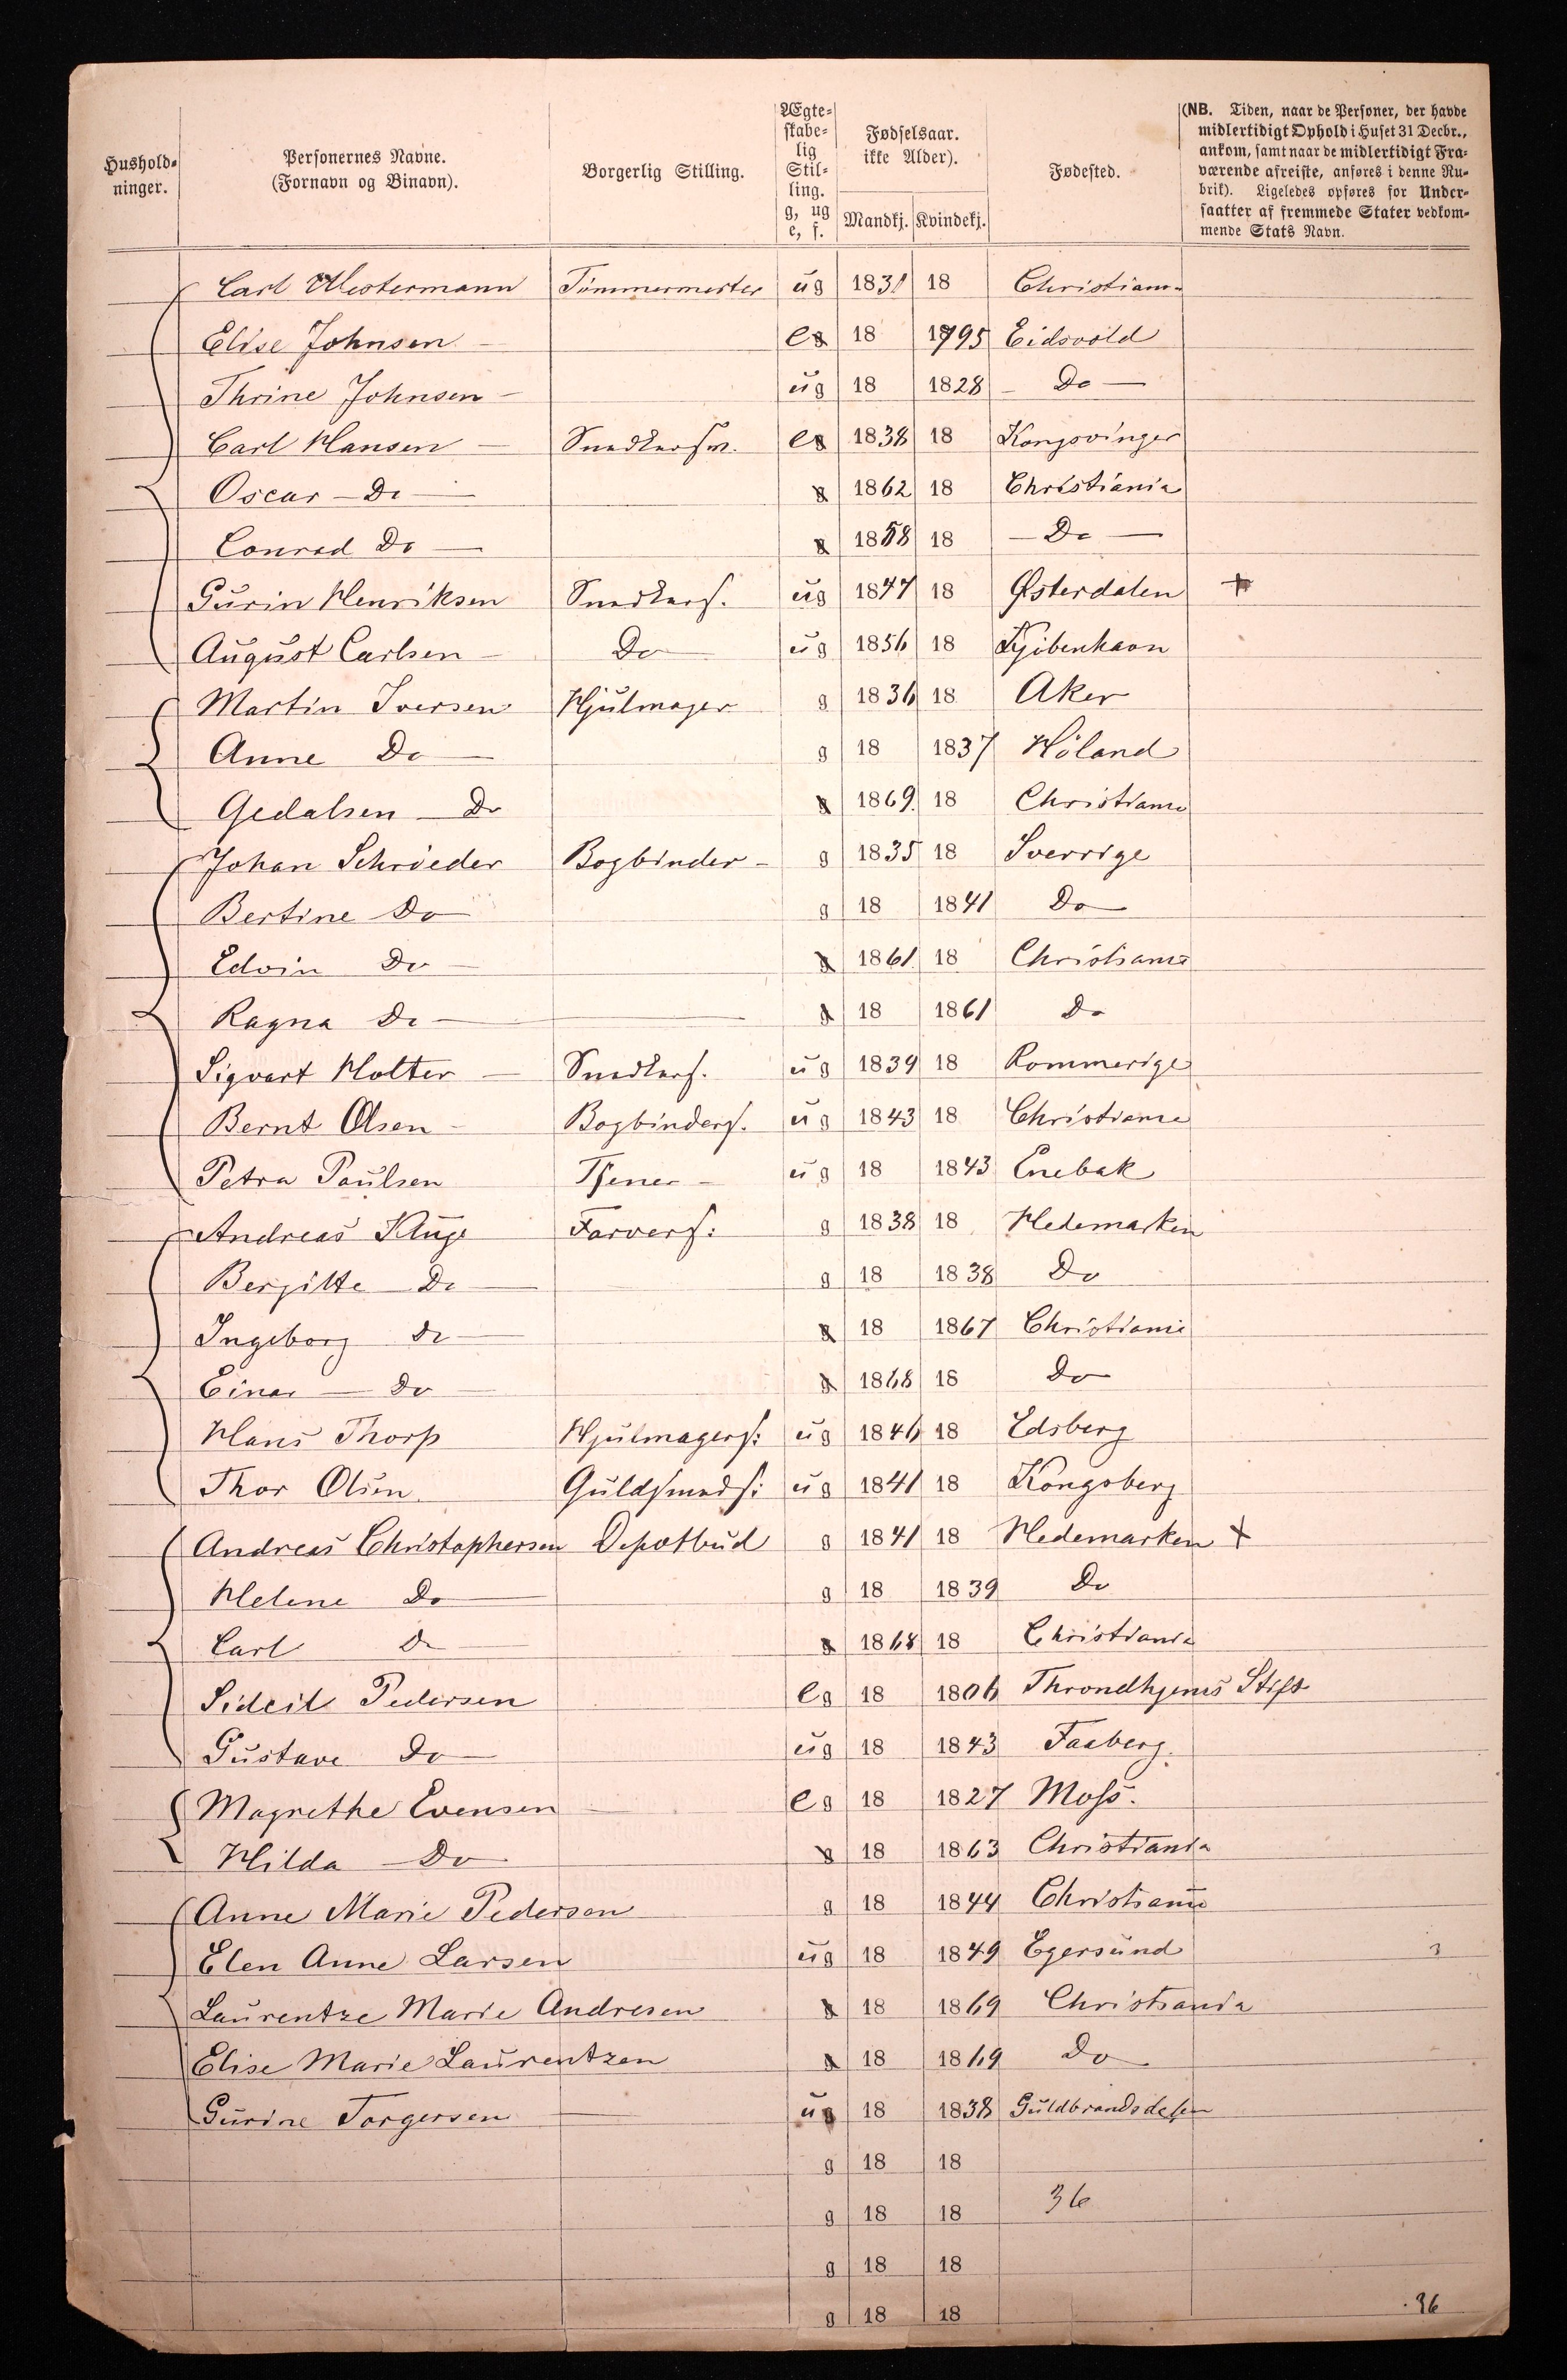 Hushold-
ninger.
Personernes Navne.
(Fornavn og Binavn).
Borgerlig Stilling.
Ægte-
skabe-
lig
Stil-
ling.
g, ug
e, f.
Fødselsaar.
ikke Alder).
Mandkj. Kvindekj.
Fødested.
(NB. Tiden, naar de Personer, der havde
midlertidigt Ophold i Huset 31 Decbr.,
ankom, samt naar de midlertidigt Fra-
værende afreiste, anføres i denne Ru-
brik). Ligeledes opføres for Under-
saatter af fremmede Stater vedkom-
mende Stats Navn.
Carl Westermann Tømmermester ug 1831 18 Christiania
Elise Johnsen e 18 1795 Eidsvold
Thrine Johnsen ug 18 1828 Do
Carl Hansen Snedkersv. e 1838 18 Kongsvinger
Oscar Do 1862 18 Christiania
Conrad Do 1858 18 Do
Gurin Henriksen Snedkers. ug 1847 18 Østerdalen +
August Carlsen Do ug 1856 18 Kjøbenhavn
Martin Iversen Hjulmager g 1836 18 Aker
Anne Do g 18 1837 Høland
Gedalsen Do 1869 18 Christiania
Johan Schrøeder Bogbinder g 1835 18 Sverrige
Bertine Do g 18 1841 Do
Edvin Do 1861 18 Christiania
Ragna Do 18 1861 Do
Sigvart Holter Snedkers. ug 1839 18 Rommerige
Bernt Olsen Bogbinders. ug 1843 18 Christiania
Petra Paulsen Tjener ug 18 1843 Enebak
Andreas Kluge Farvers: g 1838 18 Hedemarken
Bergitte Do g 18 1838 Do
Ingeborg Do 18 1867 Christiania
Einar Do 1868 18 Do
Hans Thorp Hjulmagers: ug 1846 18 Edsberg
Thor Olsen Guldsmeds: ug 1841 18 Kongsberg
Andreas Christophersen Depotbud g 1841 18 Hedemarken +
Helene Do g 18 1839 Do
Carl Do 1868 18 Christiania
Sideil Pedersen eg 18 1806 Throndhjems Stift
Gustave Do ug 18 1843 Faaberg.
Magrethe Evensen eg 18 1827 Moss.
Hilda Do 18 1863 Christiania
Anne Marie Pedersen g 18 1844 Christiania
Elen Anne Larsen ug 18 1849 Egersund
Laurentze Marie Andresen 18 1869 Christiania
Elise Marie Laurentzen 18 1869 Do
Gurine Torgersen ug 18 1838 Guldbrandsdalen
g 18 18
g 18 18 36
g 18 18
g 18 18 36